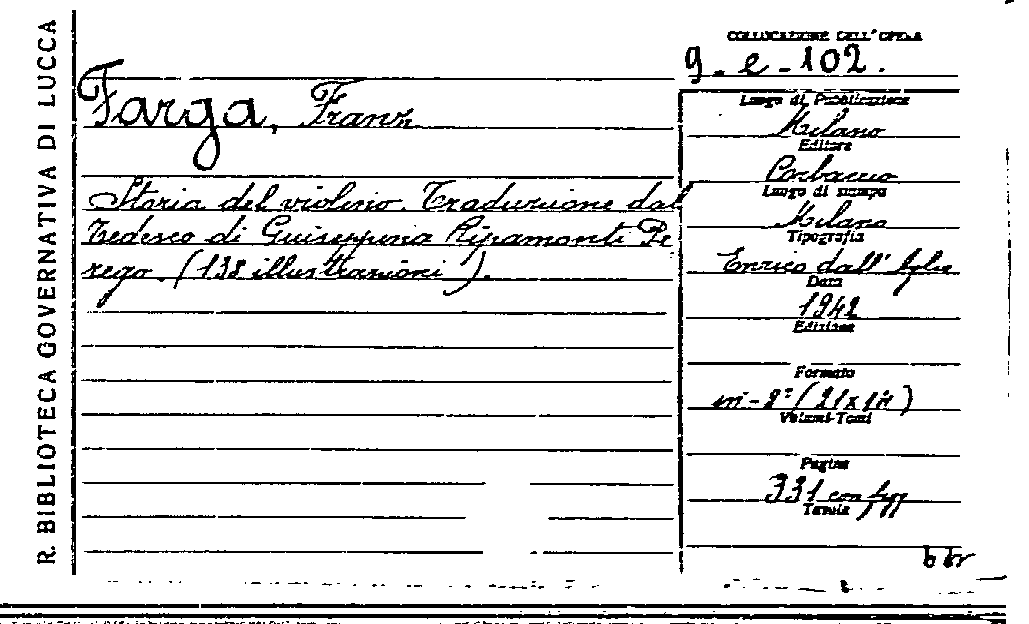 R. BIBLIOTECA GOVERNATIVA DI LUCCA
COLLOCAZIONE DELL'OPERA
9. e - 102.
Farga, Franz
Storia del violino. Traduzione dal
Tedesco di Guiseppina Ripamonti Pe
rego. (138 illustrazioni).
Luogo di Pubblicazione
Milano
Editore
Corbaccio
Luogo di stampa
Milano
Tipografia
Enrico dall'
Data
1942
Edizione
Formato
in-8° (21x14)
Volumi-Tomi
Pagine
331 con
Tavole